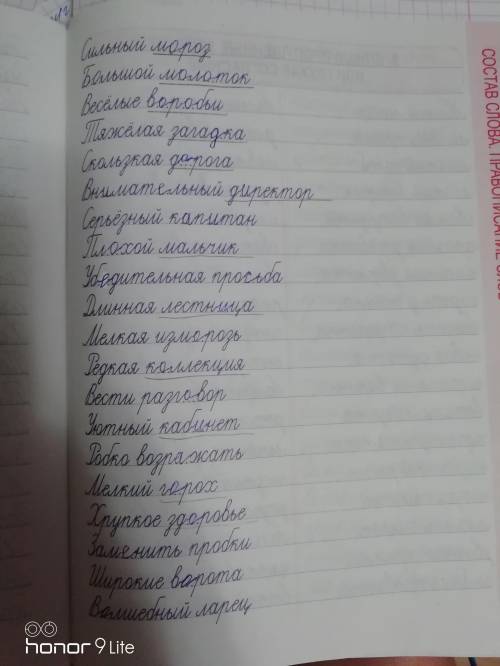 СОСТАВ СЛОВА. ПРАВОПИСАНИЕ
Сильный мороз
Большой молоток
Весёлые воробьи
Тяжёлая загадка
Скользкая дорога
Внимательный директор
Серьёзный капитан
Плохой мальчик
Убедительная просьба
Длинная лестница
Мелкая изморозь
Редкая коллекция
Вести разговор
Уютный кабинет
Робко возражать
Мелкий горох
Хрупкое здоровье
Заменить пробки
Широкие ворота
Волшебный ларец
honor 9 Lite